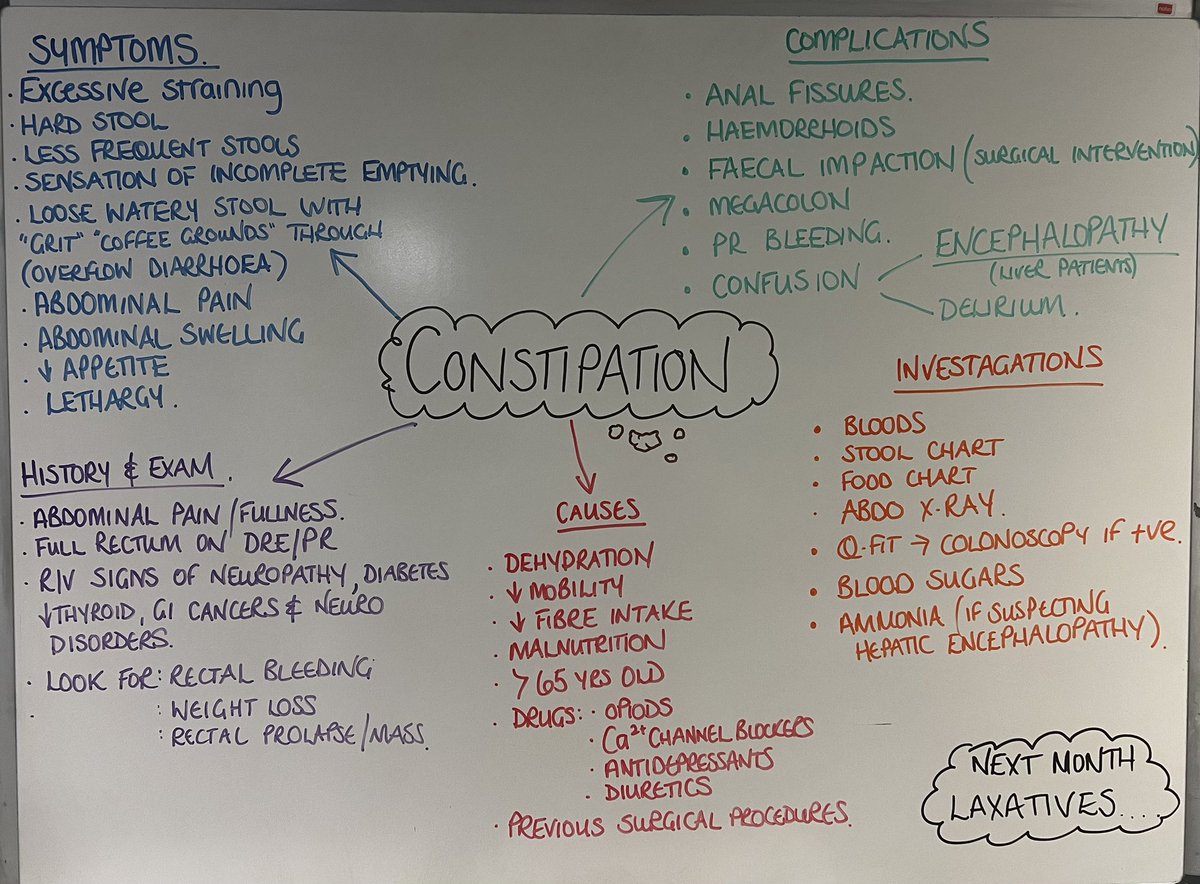 SYMPTOMS.
· Excessive straining
· HARD STOOL
· LESS FREQUENT STOOLS
· SENSATION OF INCOMPLETE EMPTYING.
· LOOSE WATERY STOOL WITH
"GRIT" "COFFEE GROUNDS" THROUGH
(OVERFLOW DIARRHOEA)
· ABDOMINAL PAIN
· ABDOMINAL SWELLING
· ↓ APPETITE
· LETHARGY.
COMPLICATIONS
· ANAL FISSURES.
· HAEMORRHOIDS
· FAECAL IMPACTION (SURGICAL INTERVENTION)
· MEGACOLON
· PR BLEEDING.
· CONFUSION
ENCEPHALOPATHY
(LIVER PATIENTS)
DELIRIUM.
CONSTIPATION
HISTORY & EXAM.
· ABDOMINAL PAIN/FULLNESS.
· FULL RECTUM ON DRE/PR
· R/V SIGNS OF NEUROPATHY, DIABETES
↓THYROID, GI CANCERS & NEURO
DISORDERS.
· LOOK FOR: RECTAL BLEEDING
: WEIGHT LOSS
: RECTAL PROLAPSE/MASS.
CAUSES
· DEHYDRATION
· ↓ MOBILITY
· ↓ FIBRE INTAKE
· MALNUTRITION
· >65 YRS OLD
· DRUGS: · OPIODS
· Ca²⁺ CHANNEL BLOCKERS
· ANTIDEPRESSANTS
· DIURETICS
· PREVIOUS SURGICAL PROCEDURES.
INVESTAGATIONS
· BLOODS
· STOOL CHART
· FOOD CHART
· ABDO X-RAY.
· Q-FIT → COLONOSCOPY IF +VE.
· BLOOD SUGARS
· AMMONIA (IF SUSPECTING
HEPATIC ENCEPHALOPATHY).
NEXT MONTH
LAXATIVES....